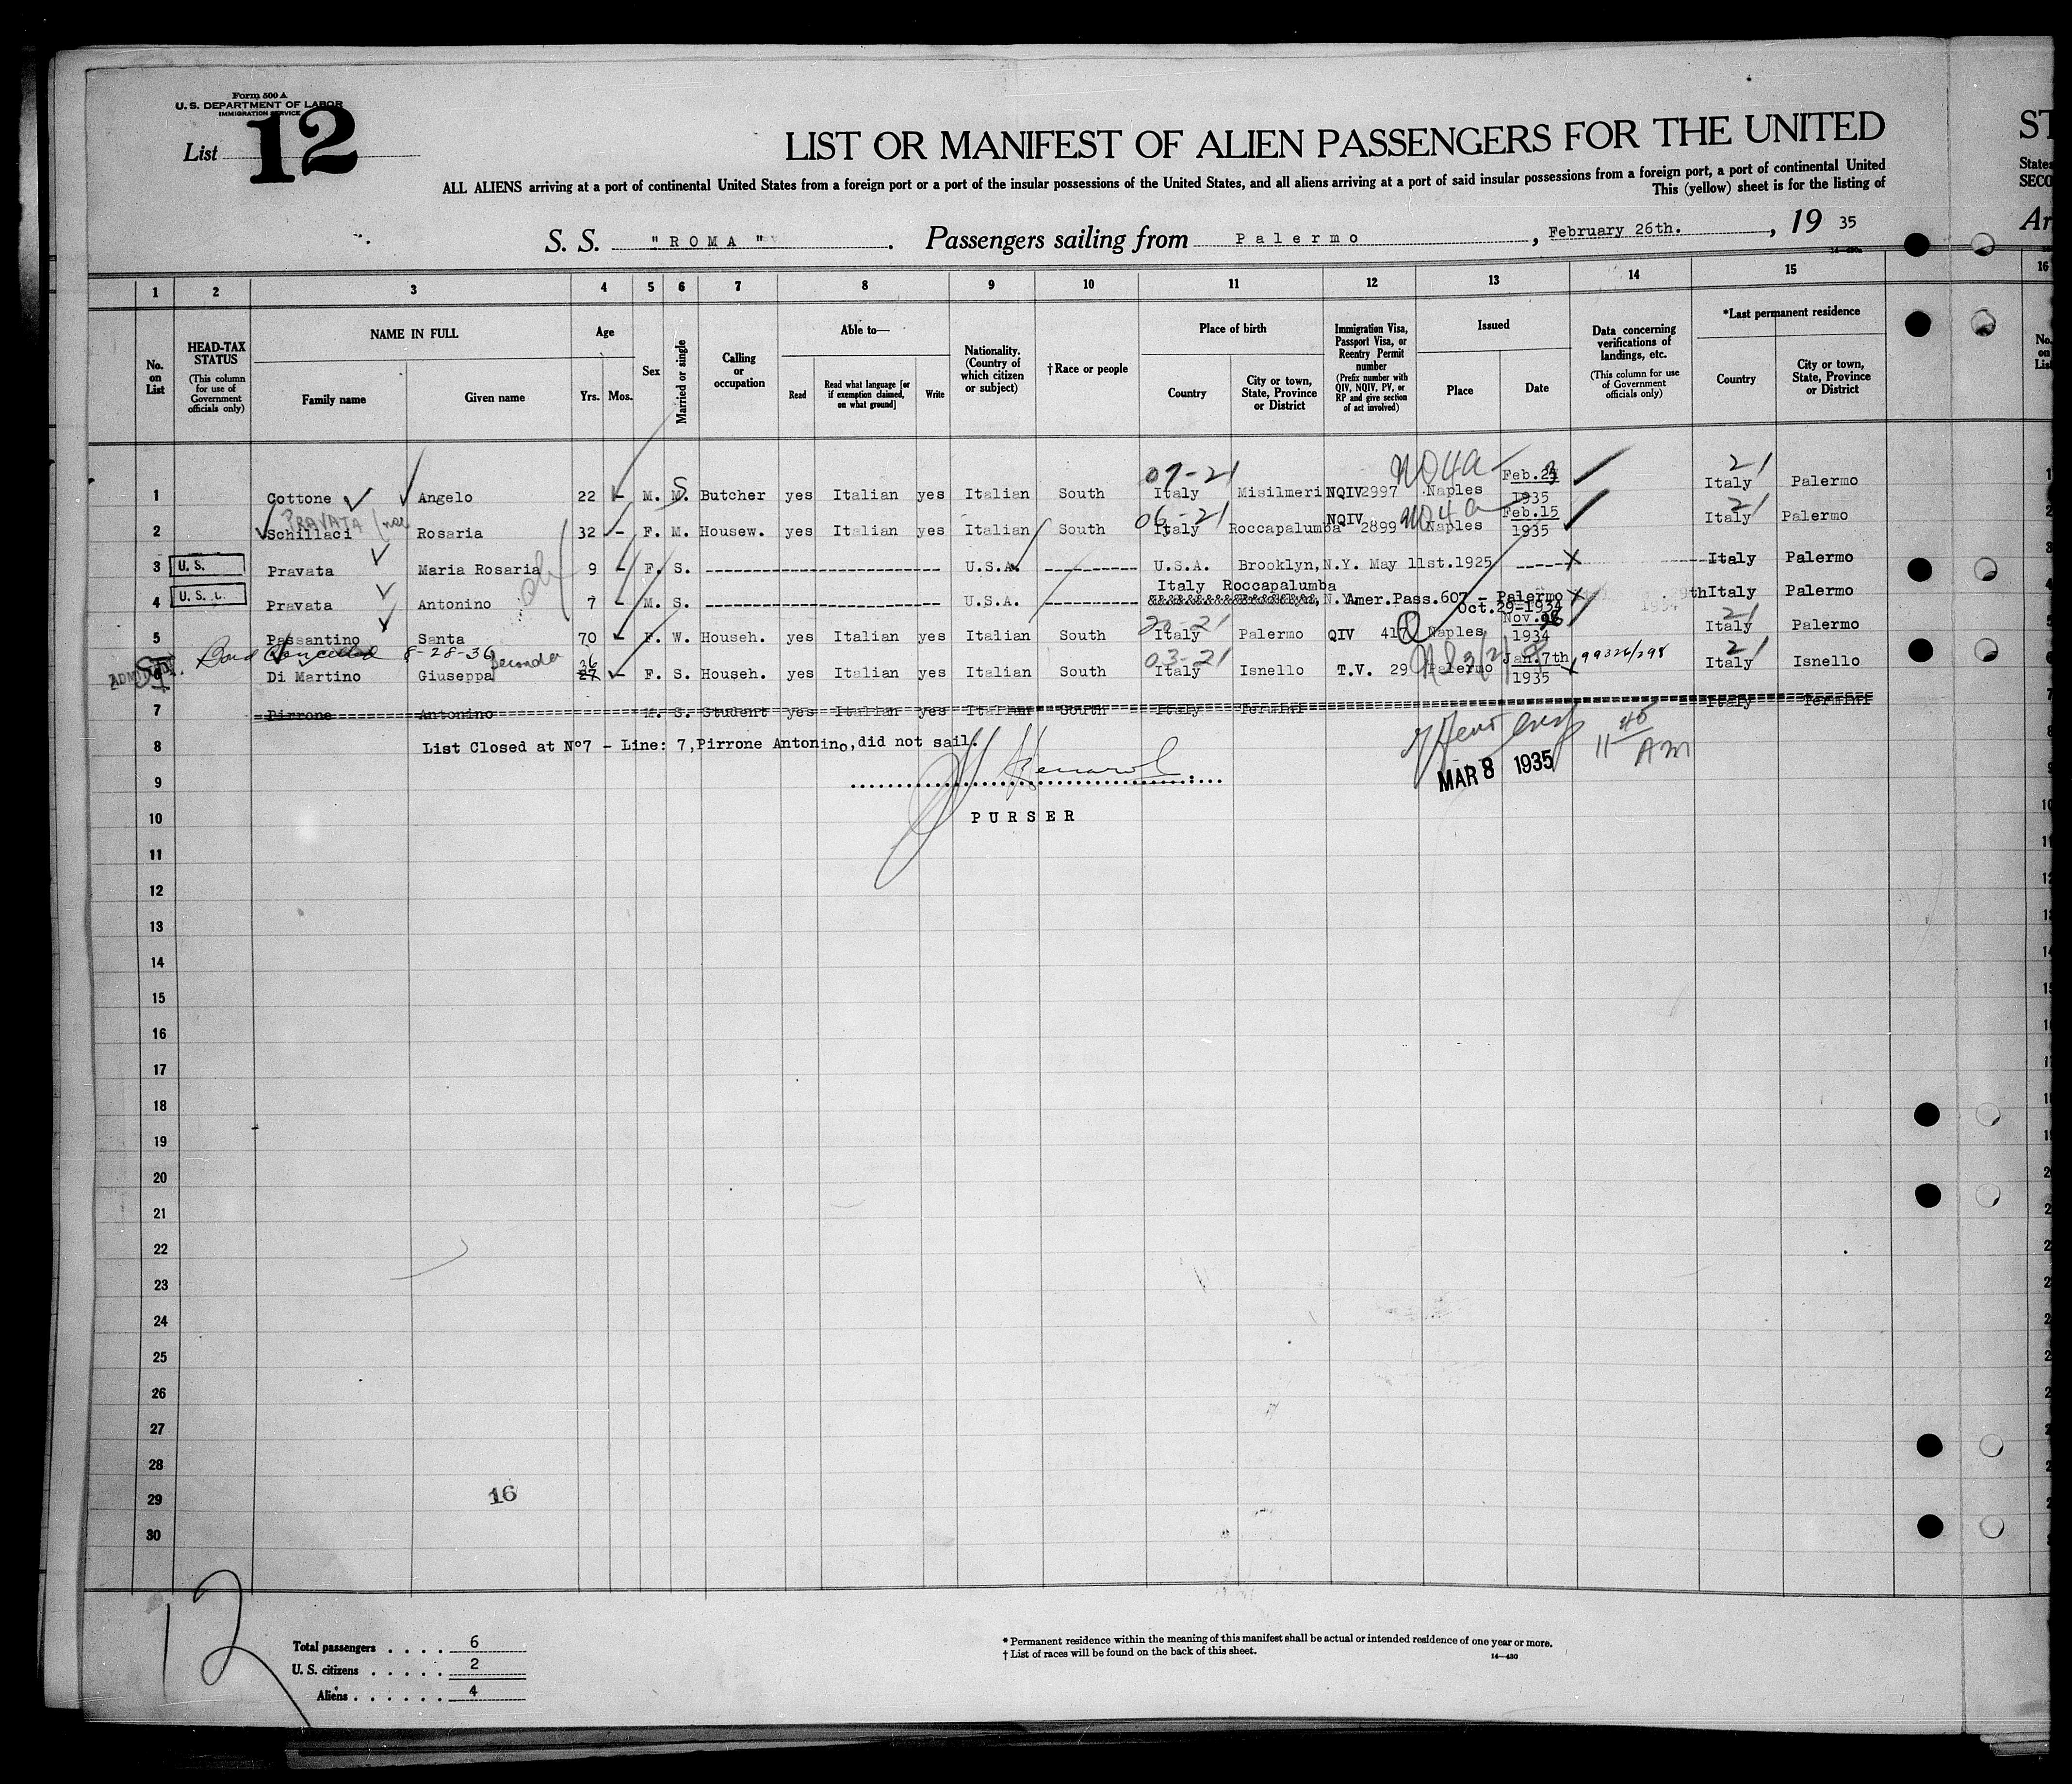 Form 500 A
U. S. DEPARTMENT OF LABOR
IMMIGRATION SERVICE
List 12
LIST OR MANIFEST OF ALIEN PASSENGERS FOR THE UNITED
ST
ALL ALIENS arriving at a port of continental United States from a foreign port or a port of the insular possessions of the United States, and all aliens arriving at a port of said insular possessions from a foreign port, a port of continental United
States
This (yellow) sheet is for the listing of
SECO
S. S. "ROMA" . Passengers sailing from Palermo , February 26th. , 19 35
Ar
14-430
1 2 3 4 5 6 7 8 9 10 11 12 13 14 15 16
No. on List
HEAD-TAX STATUS
(This column for use of Government officials only)
NAME IN FULL
Family name Given name
Age
Yrs. Mos.
Sex
Married or single
Calling or occupation
Able to—
Read
Read what language [or if exemption claimed, on what ground]
Write
Nationality. (Country of which citizen or subject)
†Race or people
Place of birth
Country
City or town, State, Province or District
Immigration Visa, Passport Visa, or Reentry Permit number
(Prefix number with QIV, NQIV, PV, or RP and give section of act involved)
Issued
Place Date
Data concerning verifications of landings, etc.
(This column for use of Government officials only)
*Last permanent residence
Country
City or town, State, Province or District
No. on List
07-21 NO4a Feb. 21
1 Cottone Angelo 22 - M. M. S Butcher yes Italian yes Italian South Italy Misilmeri NQIV 2997 Naples 1935 Italy Palermo
PRAVATA (nee 06-21 NQIV NO4a Feb.15 21
2 Schillaci Rosaria 32 - F. M. Housew. yes Italian yes Italian South Italy Roccapalumba 2899 Naples 1935 Italy Palermo
3 U. S. Pravata Maria Rosaria 9 - F. S. U.S.A. U.S.A. Brooklyn, N.Y. May 11st.1925 Italy Palermo
Italy Roccapalumba
4 U. S. C. Pravata Antonino 7 - M. S. U.S.A. N.Y. Amer.Pass.607 - Palermo th Italy Palermo
Oct.29-1934
Nov. 21
5 Passantino Santa 70 - F. W. Househ. yes Italian yes Italian South Italy Palermo QIV 417 Naples 1934 Italy Palermo
Bond Cancelled 8-28-36 Seconda 36 03-21 Jan.7th 99326/298 21
ADMITTED
6 Di Martino Giuseppa 27 - F. S. Househ. yes Italian yes Italian South Italy Isnello T.V. 29 Palermo 1935 Italy Isnello
7 Pirrone Antonino M. S. Student yes Italian yes Italian South Italy Termini Italy Termini
8 List Closed at N°7 - Line: 7, Pirrone Antonino, did not sail.
11 45 AM
MAR 8 1935
9
10 PURSER
11
12
13
14
15
16
17
18
19
20
21
22
23
24
25
26
27
28
29 16
30
12
Total passengers . . . . 6
U. S. citizens . . . . . 2
Aliens . . . . . . 4
* Permanent residence within the meaning of this manifest shall be actual or intended residence of one year or more.
† List of races will be found on the back of this sheet.
14-430